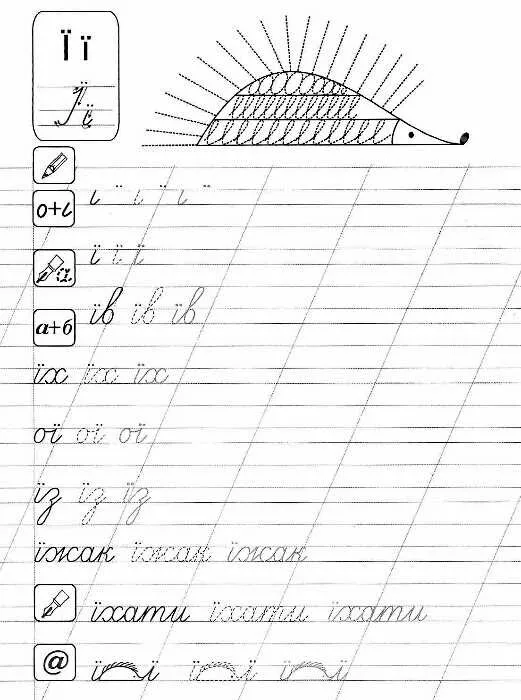 Ї ї
Ї ї
о+ı ı ¨ ı ¨ ı ¨
а ї ї ї
а+б їв їв їв
їх їх їх
ої ої ої
їз їз їз
їжак їжак їжак
їхати їхати їхати
@ ї ї ї ї ї ї